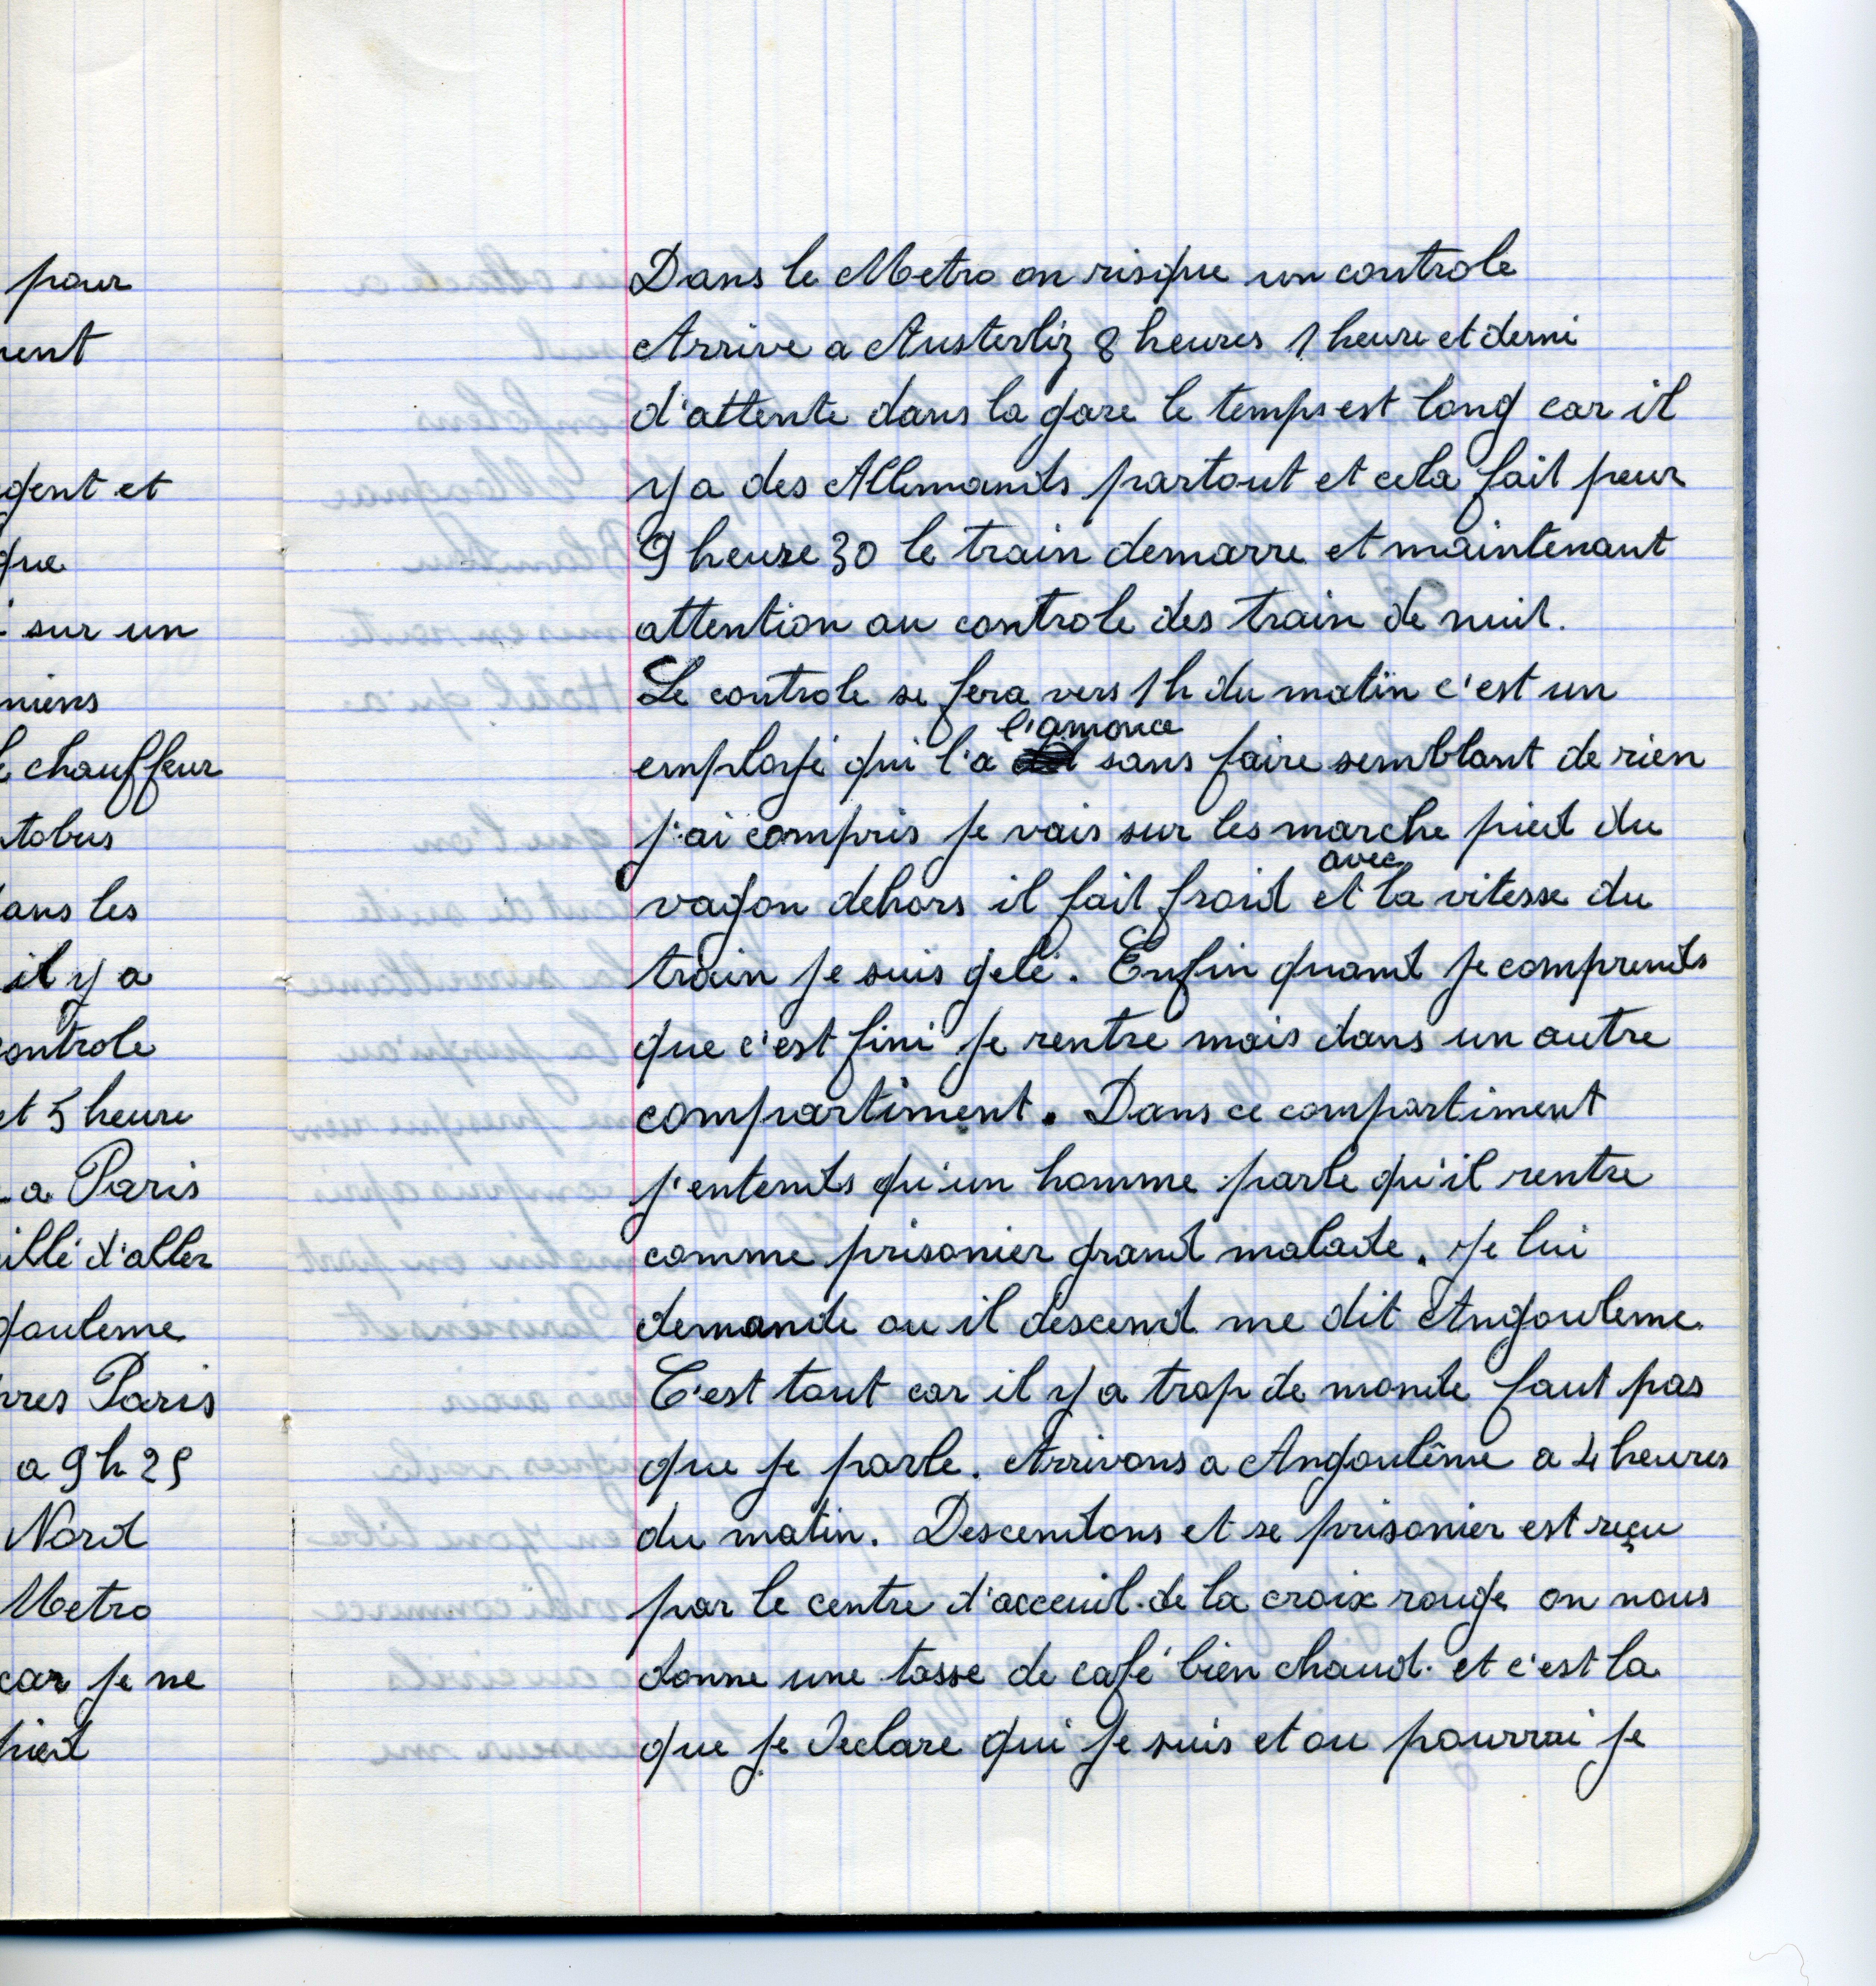 pour
gent et
que
sur un
chauffeur
ans les
il y a
ontrole
et 5 heure
a Paris
illé d'aller
gouleme
res Paris
a 9 h 25
Nord
Metro
car je ne
pied
Dans le Metro on risque un controle
Arrive a Austerliz 8 heures 1 heure et demi
d'attente dans la gare le temps est long car il
y a des Allemands partout et cela fait peur
9 heure 30 le train demarre et maintenant
attention au controle des train de nuit.
Le controle se fera vers 1 h du matin c'est un
employé qui l'a l'anonce sans faire semblant de rien
j'ai compris je vais sur les marche pied du
vagon dehors il fait froid et avec la vitesse du
train je suis gelé. Enfin quand je comprends
que c'est fini je rentre mais dans un autre
compartiment. Dans ce compartiment
j'entends qu'un homme parle qu'il rentre
comme prisonier grand malade. Je lui
demande ou il descend me dit Angouleme
C'est tout car il y a trop de monde faut pas
que je parle. Arrivons a Angoulême a 4 heures
du matin. Descendons et se prisonier est reçu
par le centre d'acceuil de la croix rouge on nous
donne une tasse de café bien chaud. et c'est la
que je declare qui je suis et ou pourrai je